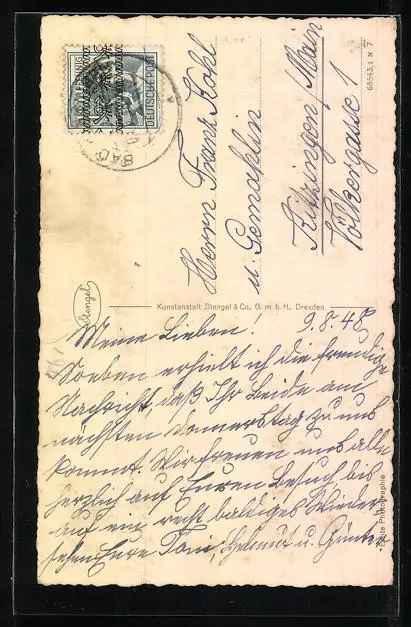 PFENNIG
DEUTSCHE POST
BAD
Herrn Franz Kohl
u. Gemahlin
Kitzingen/Main
Völkergasse 1
68543.1 N 7
Stengel
Kunstanstalt Stengel & Co., G. m. b. H., Dresden
Meine Lieben! 9.8.48
Soeben erhielt ich die freudige
Nachricht, daß Ihr beide am
nächsten Donnerstag zu uns
kommt. Wir freuen uns alle
herzlich auf Euren Besuch bis
auf ein recht baldiges Wieder-
sehen Eure Toni, Helmut u. Günter
Photographie